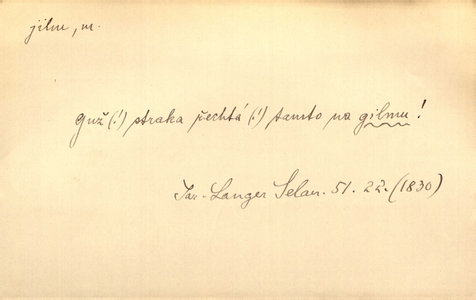 jilm, m.
Guž (!) straka řechtá (!) tamto na gilmu!
Jar. Langer Selan. 51. 22. (1830)